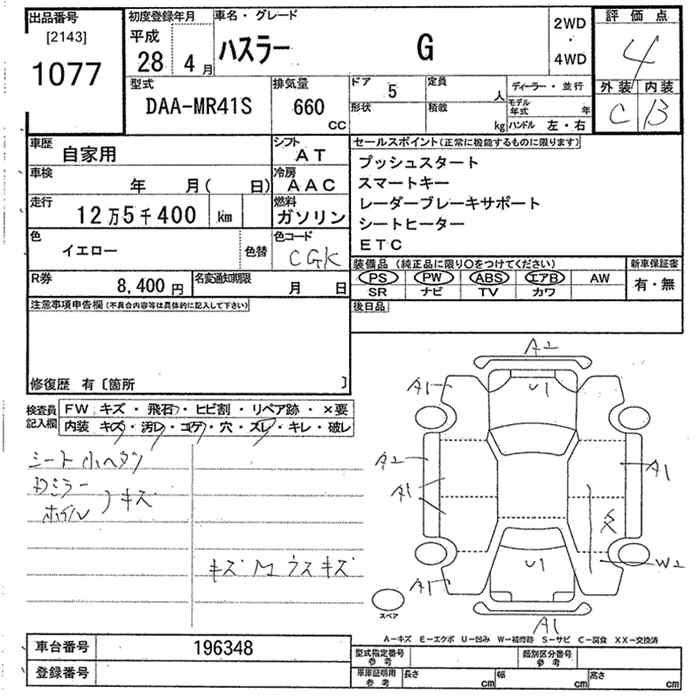 出品番号
[2143]
1077
初度登録年月
平成
28年 4月
車名・グレード
ハスラー G
2WD
・
4WD
評価点
4
外装 内装
C B
型式
DAA-MR41S
排気量
660
CC
ドア 5
形状
定員 人
積載 kg
ディーラー・並行
モデル年式 年
ハンドル 左・右
車歴
自家用
シフト
AT
車検
年 月( 日)
冷房
AAC
走行
12万5千400 km
燃料
ガソリン
色
イエロー
色替
色コード
CGK
R券
8,400円
名変通知期限
月 日
セールスポイント(正常に機能するものに限ります)
プッシュスタート
スマートキー
レーダーブレーキサポート
シートヒーター
ETC
装備品(純正品に限り○をつけてください)
PS PW ABS エアB AW
SR ナビ TV カワ
新車保証書
有・無
後日品
注意事項申告欄(不具合内容等は具体的に記入して下さい)
修復歴 有〔箇所 〕
検査員
記入欄
FW キズ・飛石・ヒビ割・リペア跡・×要
内装 キズ・汚レ・コゲ・穴・ズレ・キレ・破レ
シート小ヘタリ
Dミラー
ホイル
キズ
キズ M ウスキズ
A2
A1
U1
A2
A1
A1
W2
U1
A1
A1
スペア
A-キズ E-エクボ U-凹み W-補修跡 S-サビ C-腐食 XX-交換済
車台番号
196348
登録番号
型式指定番号
参考
類別区分番号
参考
車庫証明用
参考
長さ cm
幅 cm
高さ cm